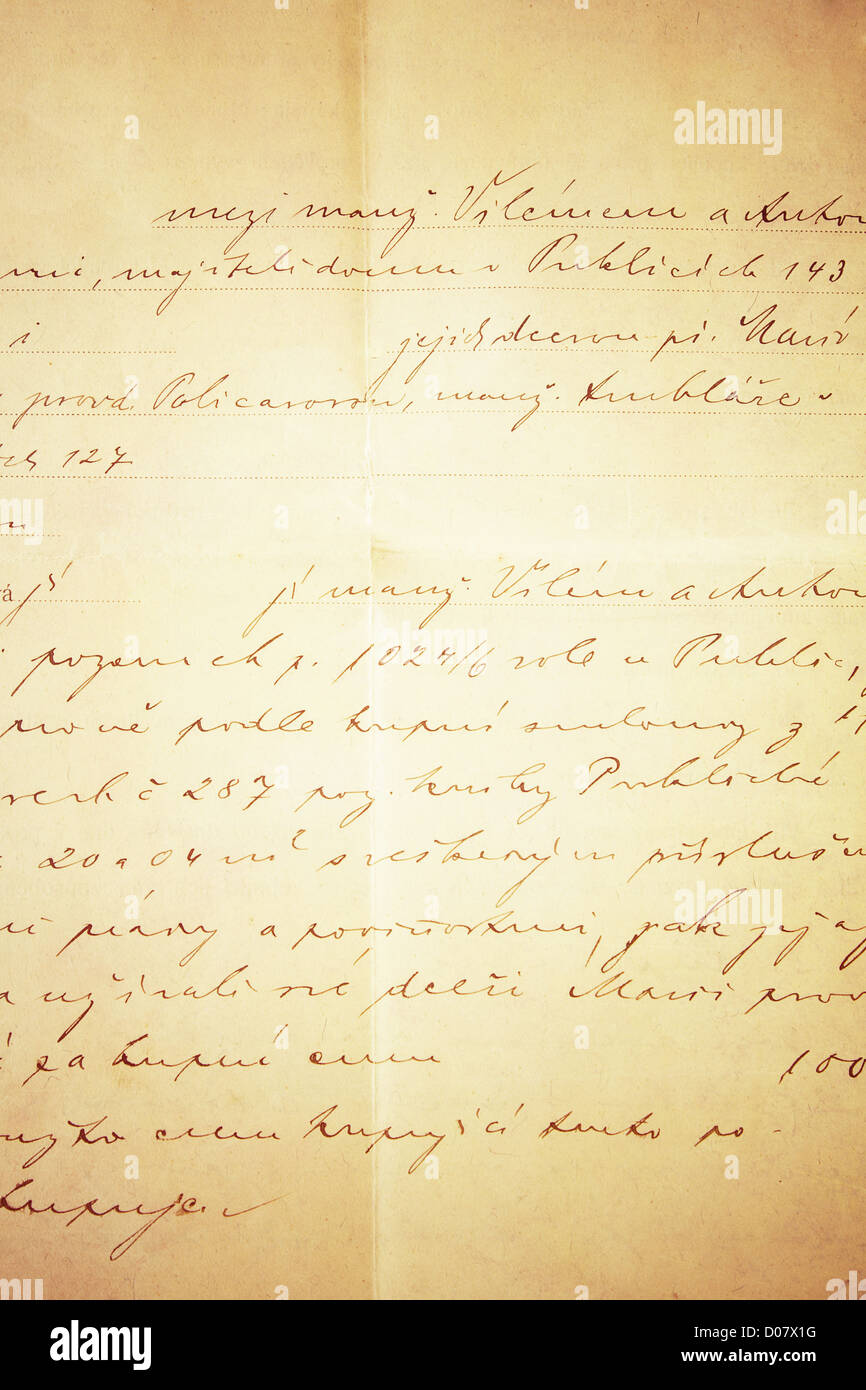 mezi manž. Vilémem a Anton
majiteli domu v Puklicích 143
i jejich dcerou pí. Marií
provd. Policarovou, manž. truhláře v
ch 127
á jí jí manž. Vilém a Anton
pozemek p. 1024/6 role v Puklic,
právě podle kupní smlouvy z
č 287 poz. knihy Puklické
20 a 04 m² s veškerým přísluše
právy a povinnostmi, jak jej
užívali své dceři Marii prov
za kupní cenu 100
cenu kupující tuto po-
kupuje.
a alamy
alamy
Image ID: D07X1G
www.alamy.com